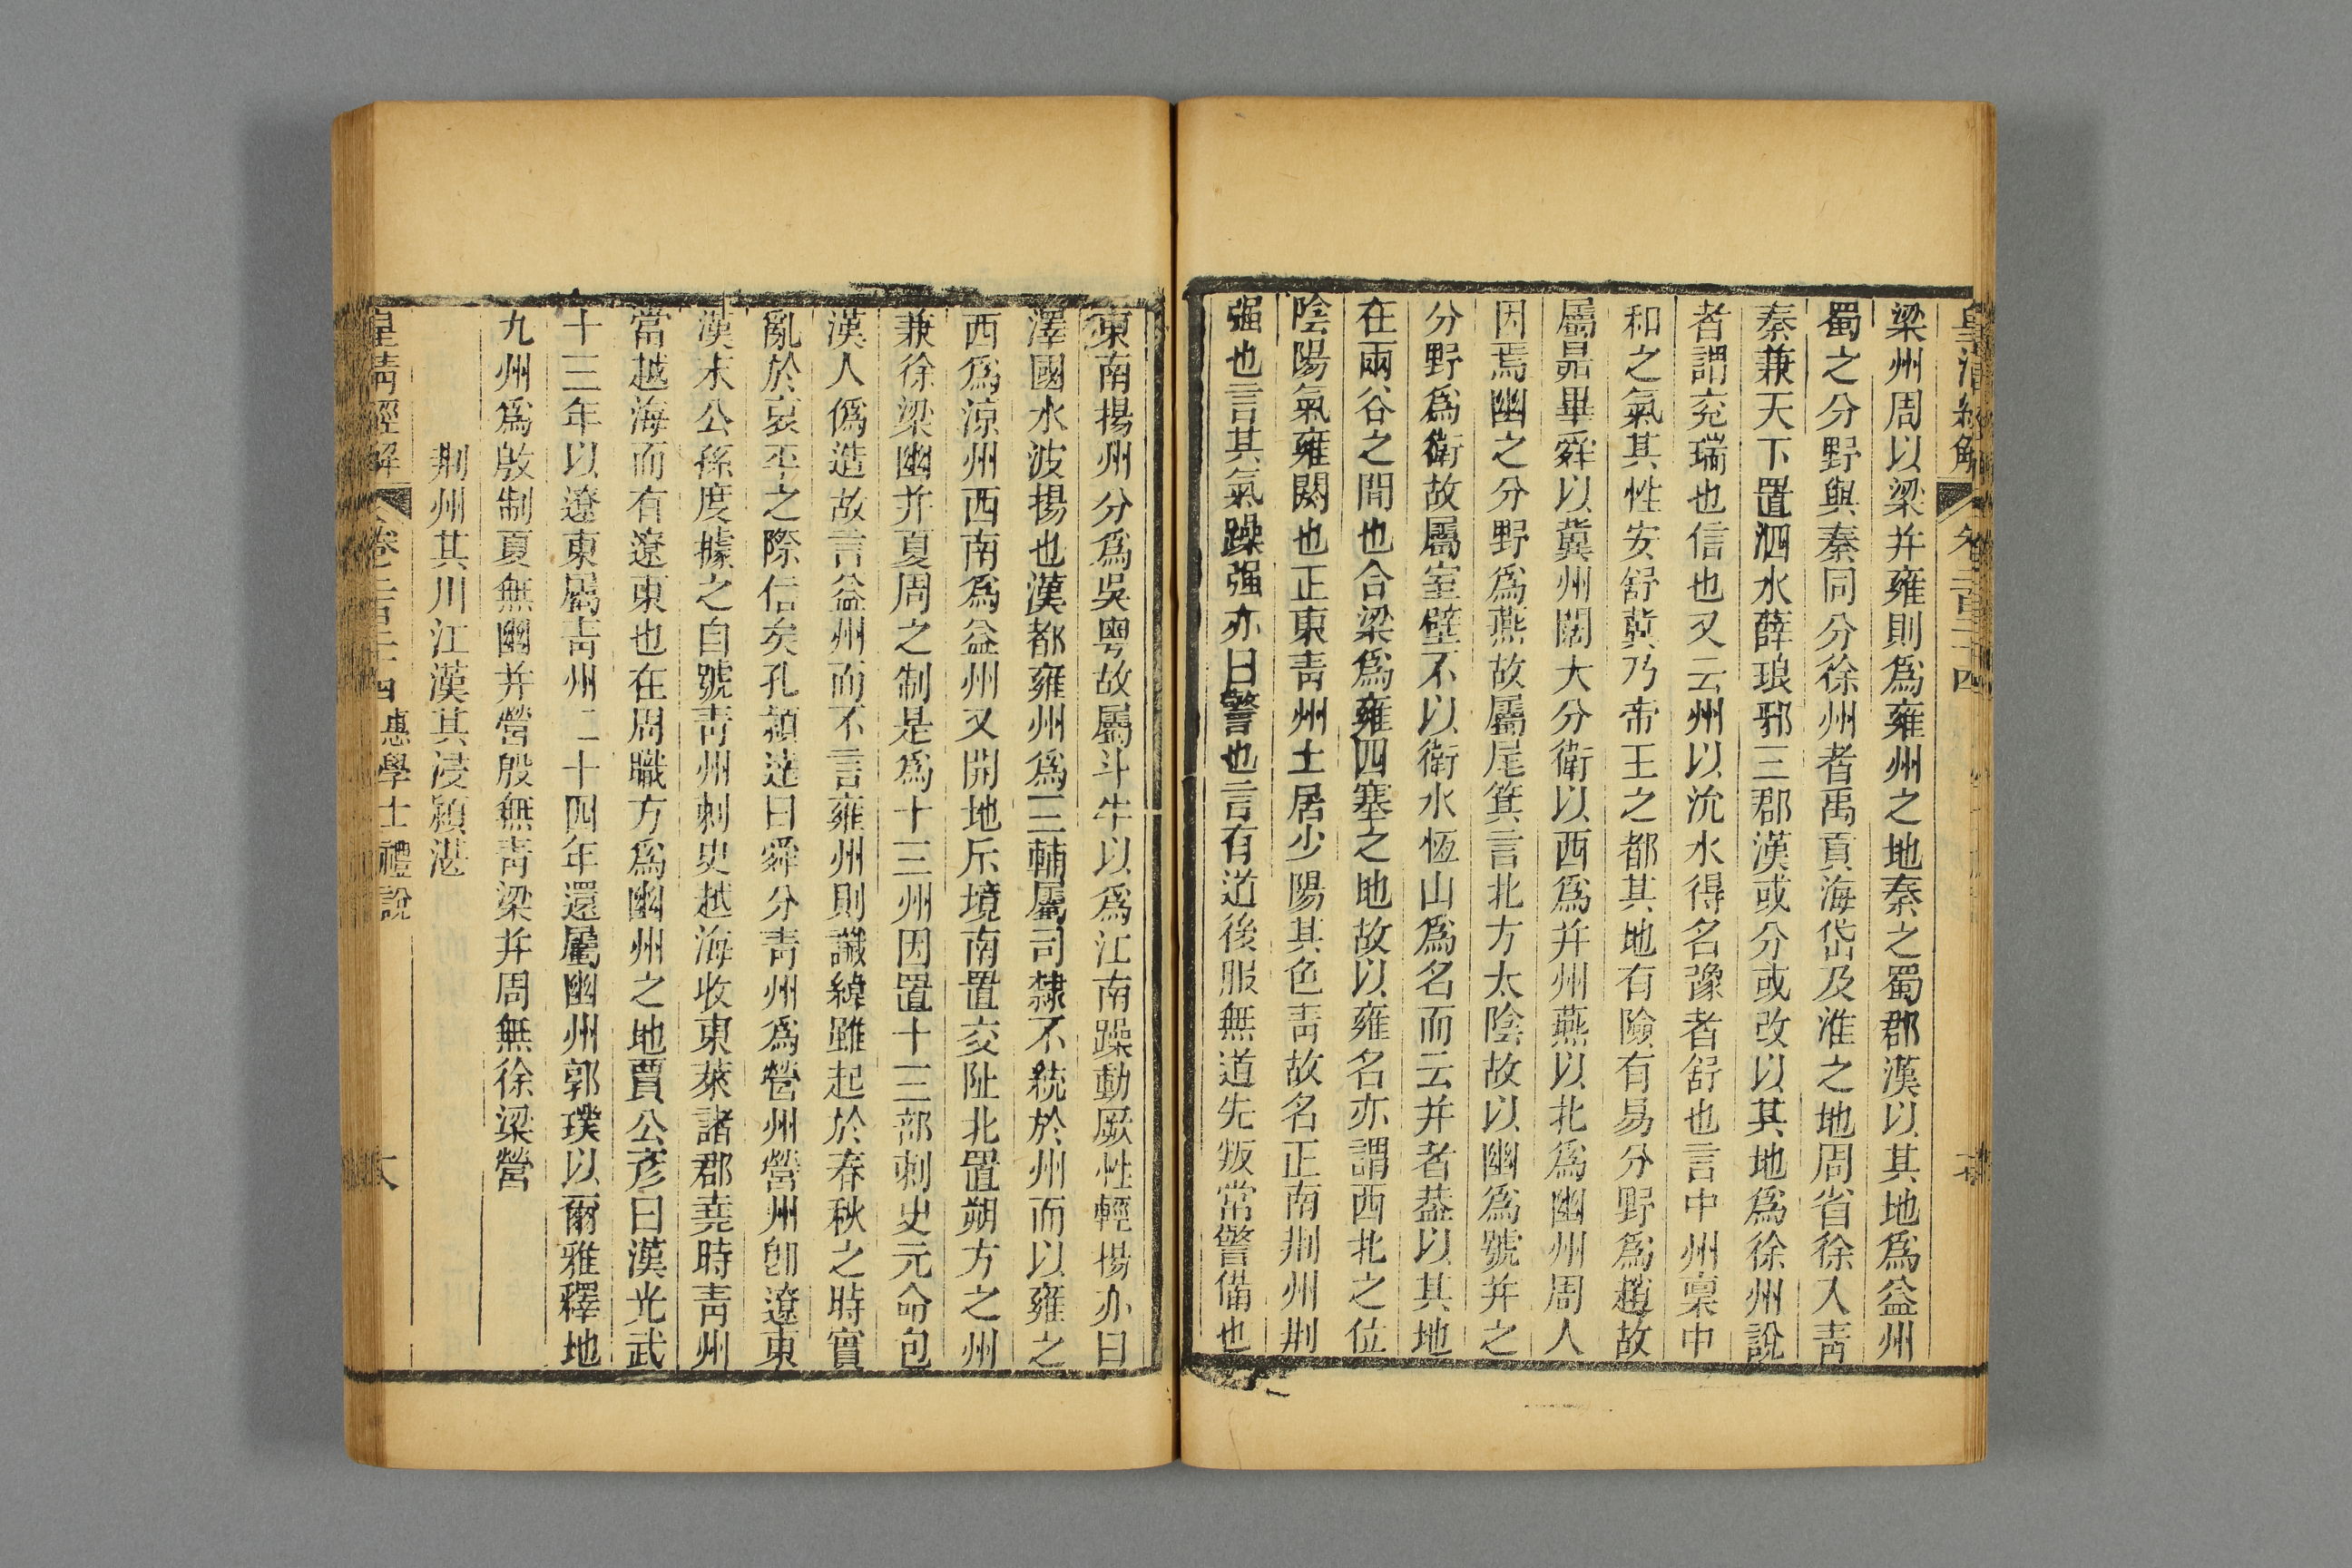 皇清經解 卷二百二十四
梁州周以梁幷雍則爲雍州之地秦之蜀郡漢以其地爲益州
蜀之分野與秦同分徐州者禹貢海岱及淮之地周省徐入靑
秦兼天下置泗水薛琅邪三郡漢或分或改以其地爲徐州說
者謂兖瑞也信也又云州以沇水得名豫者舒也言中州稟中
和之氣其性安舒冀乃帝王之都其地有險有易分野爲趙故
屬昴畢舜以冀州闊大分衛以西爲幷州燕以北爲幽州周人
因焉幽之分野爲燕故屬尾箕言北方太陰故以幽爲號幷之
分野爲衛故屬室壁不以衛水恆山爲名而云幷者蓋以其地
在兩谷之間也合梁爲雍四塞之地故以雍名亦謂西北之位
陰陽氣雍閼也正東靑州土居少陽其色靑故名正南荆州荆
强也言其氣躁强亦曰警也言有道後服無道先叛常警備也
東南揚州分爲吳粵故屬斗牛以爲江南躁動厥性輕揚亦曰
澤國水波揚也漢都雍州爲三輔屬司隸不統於州而以雍之
西爲涼州西南爲益州又開地斥境南置交阯北置朔方之州
兼徐梁幽幷夏周之制是爲十三州因置十三部刺史元命包
漢人僞造故言益州而不言雍州則讖緯雖起於春秋之時實
亂於哀平之際信矣孔潁達曰舜分靑州爲營州營州卽遼東
漢末公孫度據之自號靑州刺史越海收東萊諸郡堯時靑州
當越海而有遼東也在周職方爲幽州之地賈公彥曰漢光武
十三年以遼東屬靑州二十四年還屬幽州郭璞以爾雅釋地
九州爲殷制夏無幽幷營殷無靑梁幷周無徐梁營
荆州其川江漢其浸潁湛
皇清經解 卷二百二十四 惠學士禮說 六